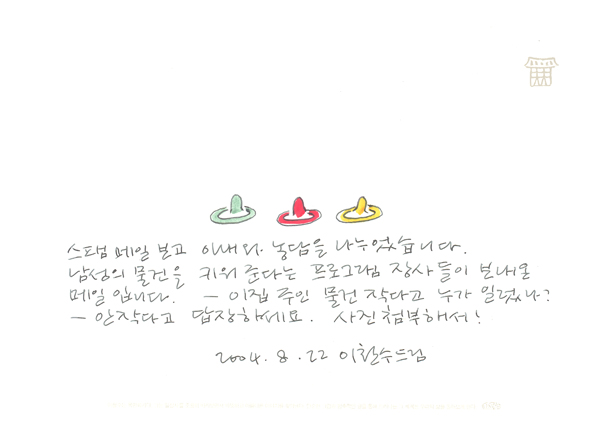 스팸 메일 보고 아내와 농담을 나누었습니다.
남성의 물건을 키워 준다는 프로그램 장사들이 보내온
메일 입니다. – 이집 주인 물건 작다고 누가 일렀나?
– 안작다고 답장하세요. 사진첨부해서!
2004. 8. 22 이철수드림